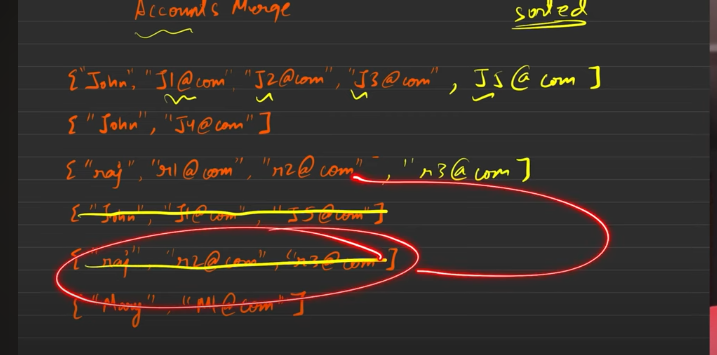 Accounts Merge
sorted
["John", "J1@com" "J2@com", "J3@com", J5@com]
["John", "J4@com"]
["raj", "r1@com", "r2@com", "r3@com]
["John", "J1@com", "J5@com"]
["raj", "r2@com", "r3@com"]
["Mary", "M1@com"]